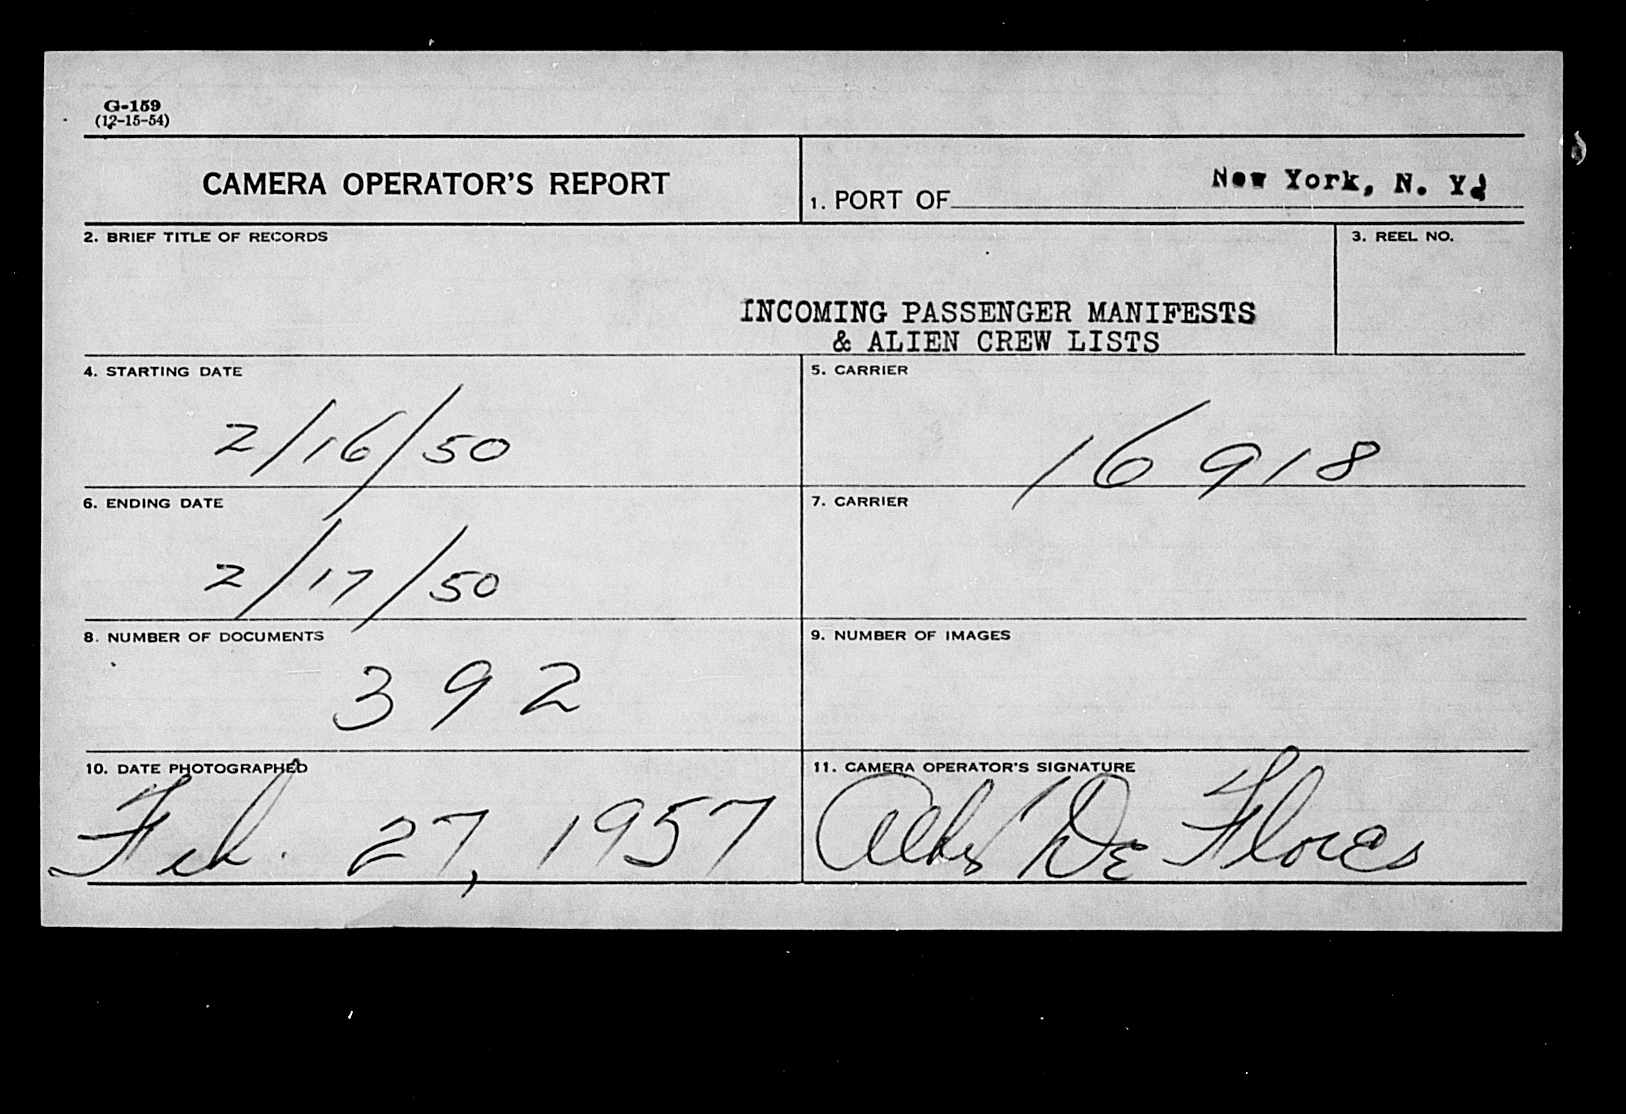 G-159
(12-15-54)
CAMERA OPERATOR'S REPORT
1. PORT OF New York, N. Y.
2. BRIEF TITLE OF RECORDS
3. REEL NO.
INCOMING PASSENGER MANIFESTS
& ALIEN CREW LISTS
4. STARTING DATE
2/16/50
5. CARRIER
16918
6. ENDING DATE
2/17/50
7. CARRIER
8. NUMBER OF DOCUMENTS
392
9. NUMBER OF IMAGES
10. DATE PHOTOGRAPHED
Feb. 27, 1957
11. CAMERA OPERATOR'S SIGNATURE
De Flores